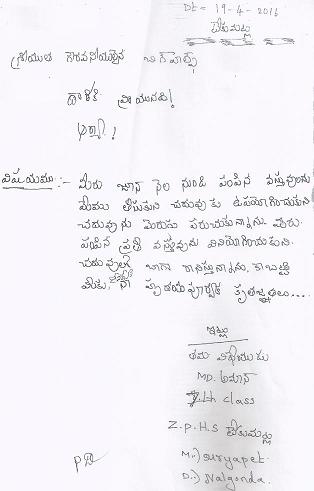 Dt = 19-4-2016
టేకుమట్ల
శ్రీయుత గౌరవనీయులైన
వ్రాయునది!
ఆర్యా!
విషయము :- మీరు జూన్ నెల నుండి పంపిన వస్తువులను
మేము తీసుకుని చదువుకు ఉపయోగించుకుని
చదువును మెరుగు పరుచుకున్నాను. మీరు
పంపిన ప్రతి వస్తువును వినియోగించుకుని.
చదువులో బాగా రాణిస్తున్నాను. కాబట్టి
మీకు, నా హృదయపూర్వక కృతజ్ఞతలు....
ఇట్లు
తమ విధేయుడు
MD. అమాన్
7th class
Z.p.H.S టేకుమట్ల
M:) Suryapet.
D:) Nalgonda.